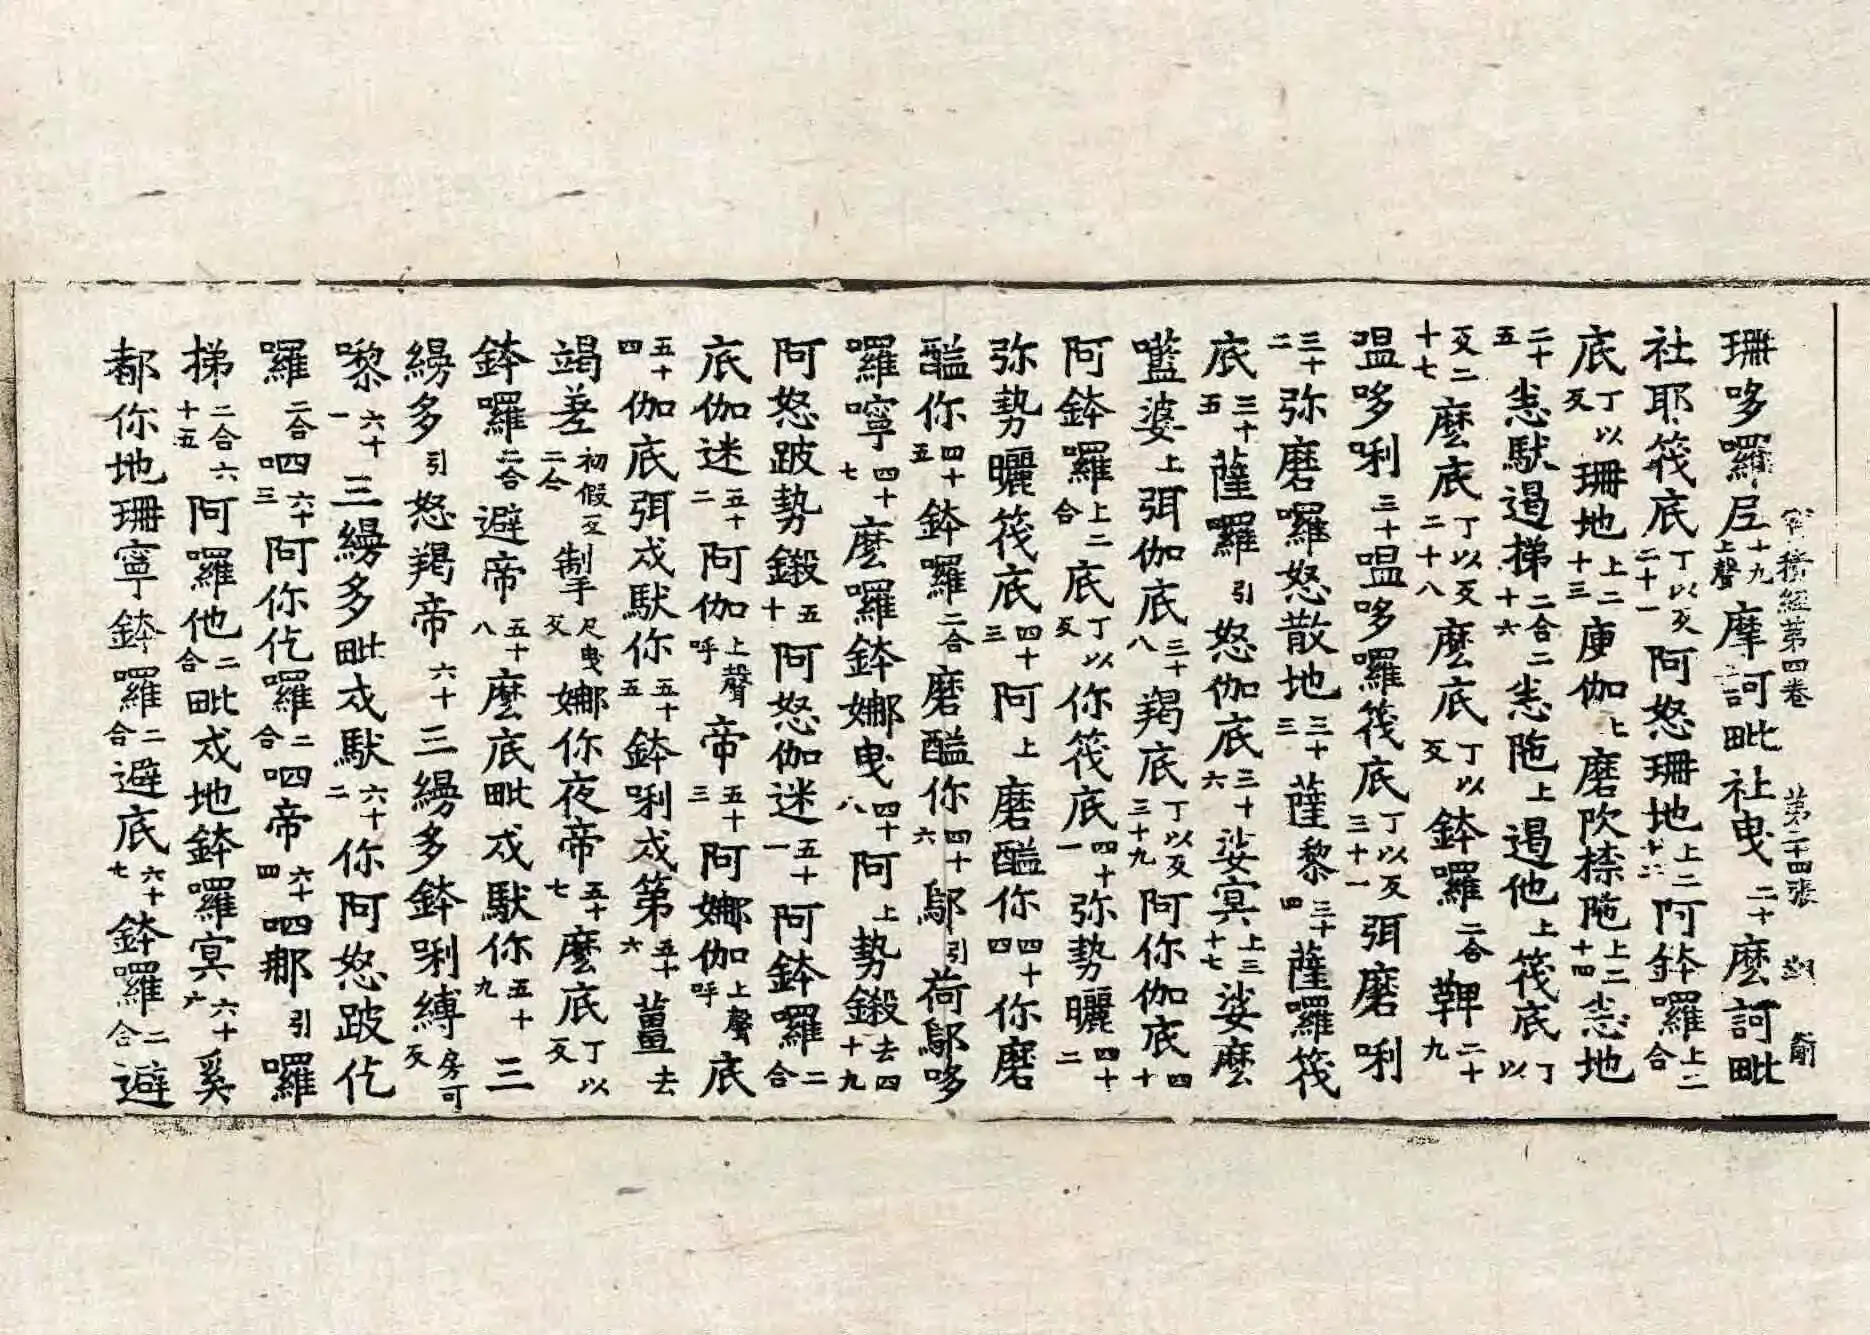 珊哆囉尼十九上聲摩訶毗社曳二十麼訶毗
寶積經第四卷 第二十四張 翔
社耶筏底丁以反二十一阿怒珊地上二十二阿鉢囉上二合
底丁以反珊地上二十三庾伽上磨欣㮈陁上二十四恙地
二十五恙馱遏梯二合二十六恙陁上遏他上筏底丁以
反二十七麼底丁以反二十八麼底丁以反鉢囉二合鞞二十九
嗢哆唎三十嗢哆囉筏底丁以反三十一弭磨唎
三十二弥磨囉怒散地三十三薩黎三十四薩囉筏
底三十五薩囉引怒伽底三十六娑冥上三十七娑麼
嚂婆上弭伽底三十八羯底丁以反三十九阿你伽底四十
阿鉢囉上二合底引丁以反你筏底四十一弥勢曬四十二
弥勢曬筏底四十三阿上磨醯你四十四你磨
醯你四十五鉢囉二合磨醯你四十六鄔引荷鄔哆
囉嚀四十七麼囉鉢娜曳四十八阿上勢鎩去四十九
阿怒跛勢鎩五十阿怒伽迷五十一阿鉢囉二合
底伽迷五十二阿伽上聲呼帝五十三阿娜伽上聲呼底
五十四伽底弭戍馱你五十五鉢唎戍第五十六薑去
竭差初假反二合掣尺曳反娜你夜帝五十七麼底丁以反
鉢囉二合避帝五十八麼底毗戍馱你五十九三
縵多引怒羯帝六十三縵多鉢唎縛房可反
嚟六十一三縵多毗戍馱六十二你阿怒跛仡
囉二合呬六十三阿你仡囉二合呬帝六十四呬那引囉
梯二合六十五阿囉他二合毗戍地鉢囉冥六十六奚
都你地珊寧鉢囉二合避底六十七鉢囉二合避